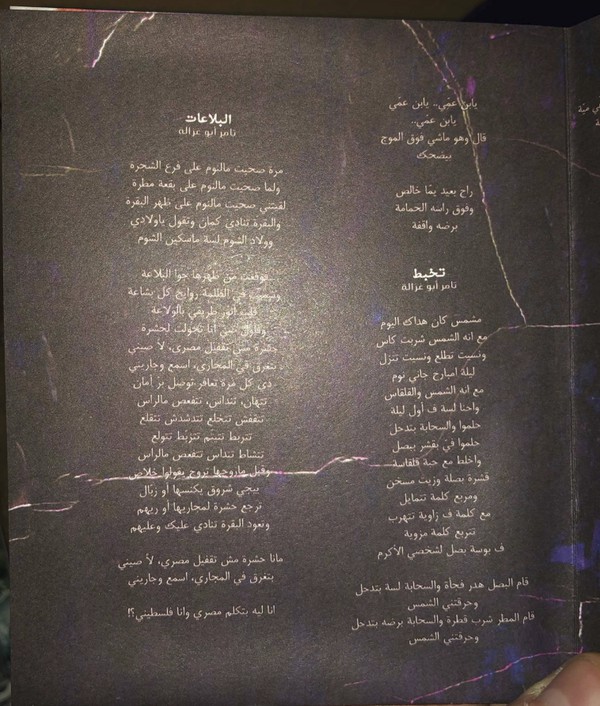 يابن عمّي.. يابن عمّي
يابن عمّي..
قال وهو ماشي فوق الموج
بيضحك
راح بعيد يمّا خالص
وفوق راسه الحمامة
برضه واقفة
تخبط
تامر أبو غزالة
مشمس كان هداك اليوم
مع انه الشمس شربت كاس
ونسيت تطلع ونسيت تنزل
ليلة امبارح جاني نوم
مع انه الشمس والقلقاس
واحنا لسة ف أول ليلة
حلموا والسحابة بتدخل
حلموا في بقشر بيصل
واخلط مع حبة قلقاسة
قشرة بصلة وزيت مسخن
ومربع كلمة تتمايل
مع كلمة ف زاوية تتهرب
تتربع كلمة مزوية
ف بوسة بصل لشخصي الأكرم
قام البصل هدر فجأة والسحابة لسة بتدخل
وحرقتني الشمس
قام المطر شرب قطرة والسحابة برضه بتدخل
وحرقتني الشمس
البلاعات
تامر أبو غزالة
مرة صحيت مالنوم على فرع الشجرة
ولما صحيت مالنوم على بقعة مطرة
لقيتني صحيت مالنوم على ظهر البقرة
والبقرة تنادي كمان وتقول ياولادي
وولاد الشوم لسة ماسكين الشوم
توقعت من ظهرها جوا البلاعة
في الظلمة روايح كل بشاعة
قلت أنور طريقي بالولاعة
أنا تحولت لحشرة
حشرة مش تقفيل مصري، لأ صيني
بتغرق في المجاري، اسمع وجاريني
دي كل مرة تعافر توصل بر أمان
تتهان، تتداس، تتفعص مالراس
تتفشش تتخلع تتدشدش تتقلع
تتربط تتيتم تتزنط تتولع
تتشاط تتداس تتفعص مالراس
وقبل ماروحها تروح بقولوا خلاص
بيجي شروق يكنسها أو زبّال
ترجع حشرة لمجاريها أو ريهم
وتعود البقرة تنادي عليك وعليهم
مانا حشرة مش تقفيل مصري، لأ صيني
بتغرق في المجاري، اسمع وجاريني
انا ليه بتكلم مصري وانا فلسطيني؟!